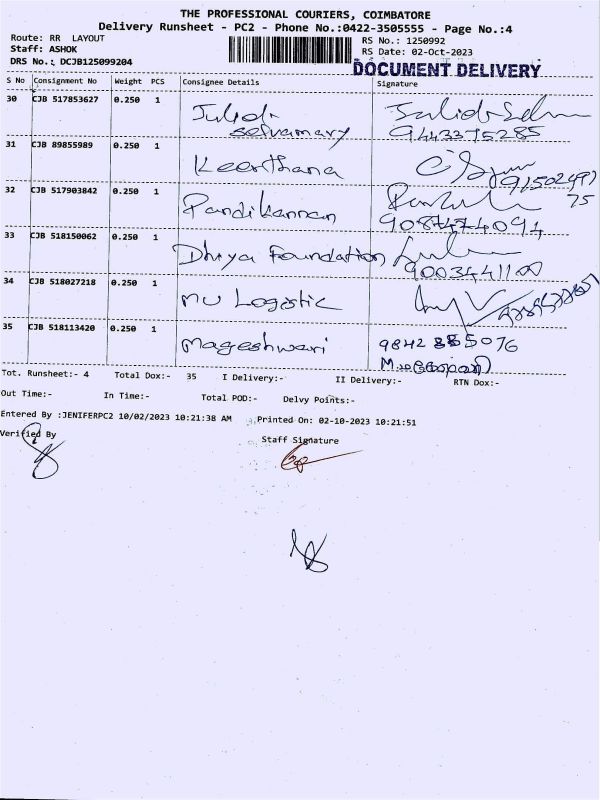 THE PROFESSIONAL COURIERS, COIMBATORE
Delivery Runsheet - PC2 - Phone No.:0422-3505555 - Page No.:4
Route: RR LAYOUT
RS No.: 1250992
Staff: ASHOK
RS Date: 02-Oct-2023
DRS No.: DCJB125099204
DOCUMENT DELIVERY
S No Consignment No Weight PCS Consignee Details Signature
30 CJB 517853627 0.250 1 Julid
selvamary
9443375285
31 CJB 89855989 0.250 1 Keerthana
32 CJB 517903842 0.250 1 Pandikannan
9087474094
33 CJB 518150062 0.250 1 Dhiya Foundation
9003441100
34 CJB 518027218 0.250 1 MU Logistic
35 CJB 518113420 0.250 1 Mageshwari
Tot. Runsheet:- 4 Total Dox:- 35 I Delivery:- II Delivery:- RTN Dox:-
Out Time:- In Time:- Total POD:- Delvy Points:-
Entered By :JENIFERPC2 10/02/2023 10:21:38 AM Printed On: 02-10-2023 10:21:51
Verified By
Staff Signature